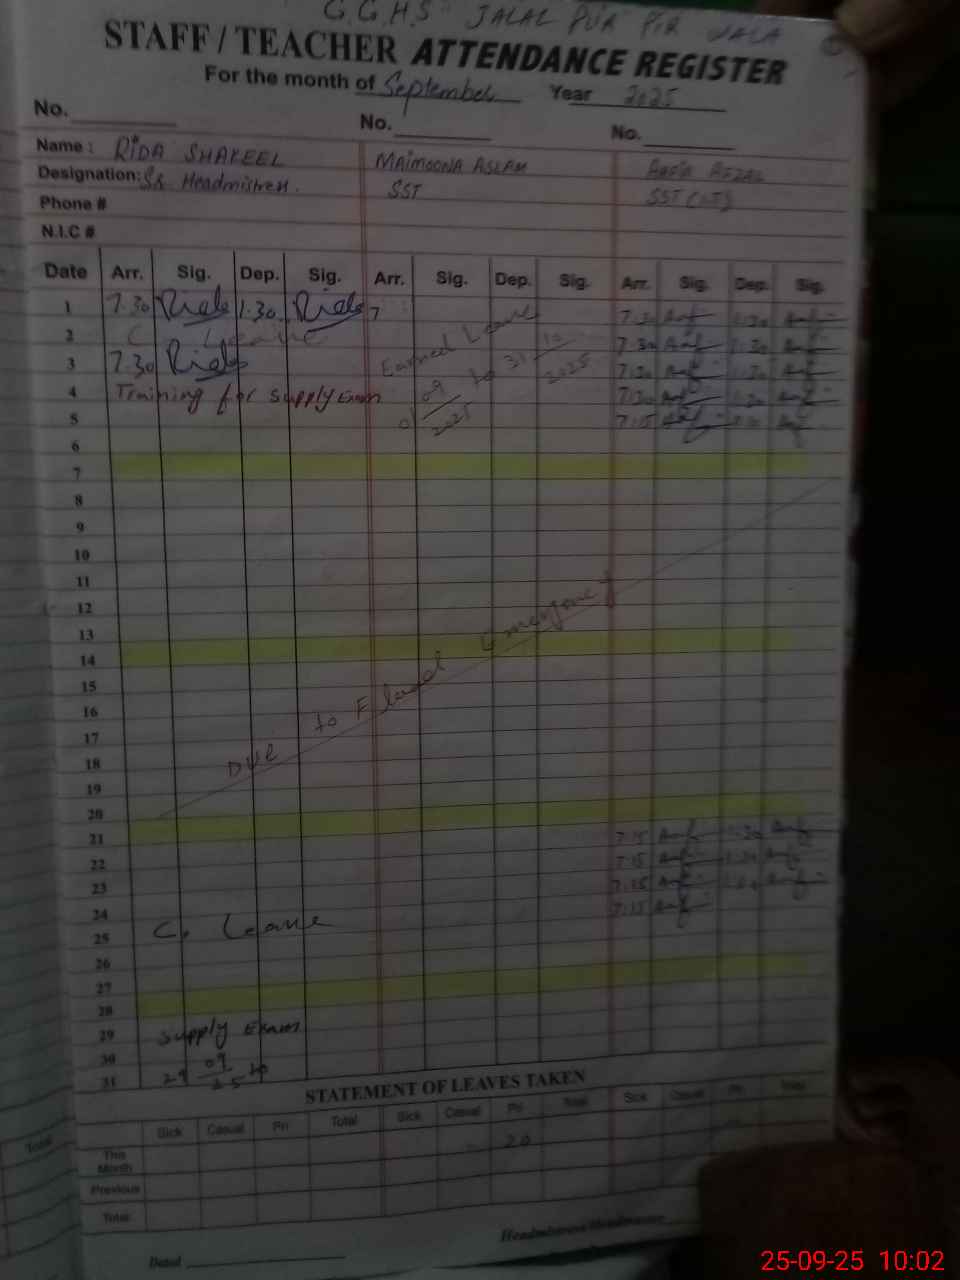 G.G.H.S JALAL PUR PIR WALA
STAFF / TEACHER ATTENDANCE REGISTER
For the month of September Year 2025
No. No. No.
Name : RIDA SHAKEEL MAIMOONA ASLAM AFZAL
Designation: Sr Headmistress. SST SST
Phone #
N.I.C #
Date Arr. Sig. Dep. Sig. Arr. Sig. Dep. Sig. Arr. Sig. Dep. Sig.
1 7.30 Rida 1.30 Rida 7 7.30 1.30
2 C Leave Earned Leave 7.30 1.30
3 7.30 Rida 01/09/2025 to 31/10/2025 7.30 1.30
4 Training for Supply Exam 7.30 1.30
5 7.15
6
7
8
9
10
11
12
13
14
15
16
17
18
19
20
Due to Flood Emergency
21 7.15 1.30
22 7.15 1.30
23 7.15 1.30
24 7.15
25 C. Leave
26
27
28
29 Supply Exam
30
31 29 09 25 to
STATEMENT OF LEAVES TAKEN
Sick Casual Pri Total Sick Casual Pri Total Sick Casual Pri Total
This Month 20
Previous
Total
Dated
Headmistress/Headmaster
Total
25-09-25 10:02